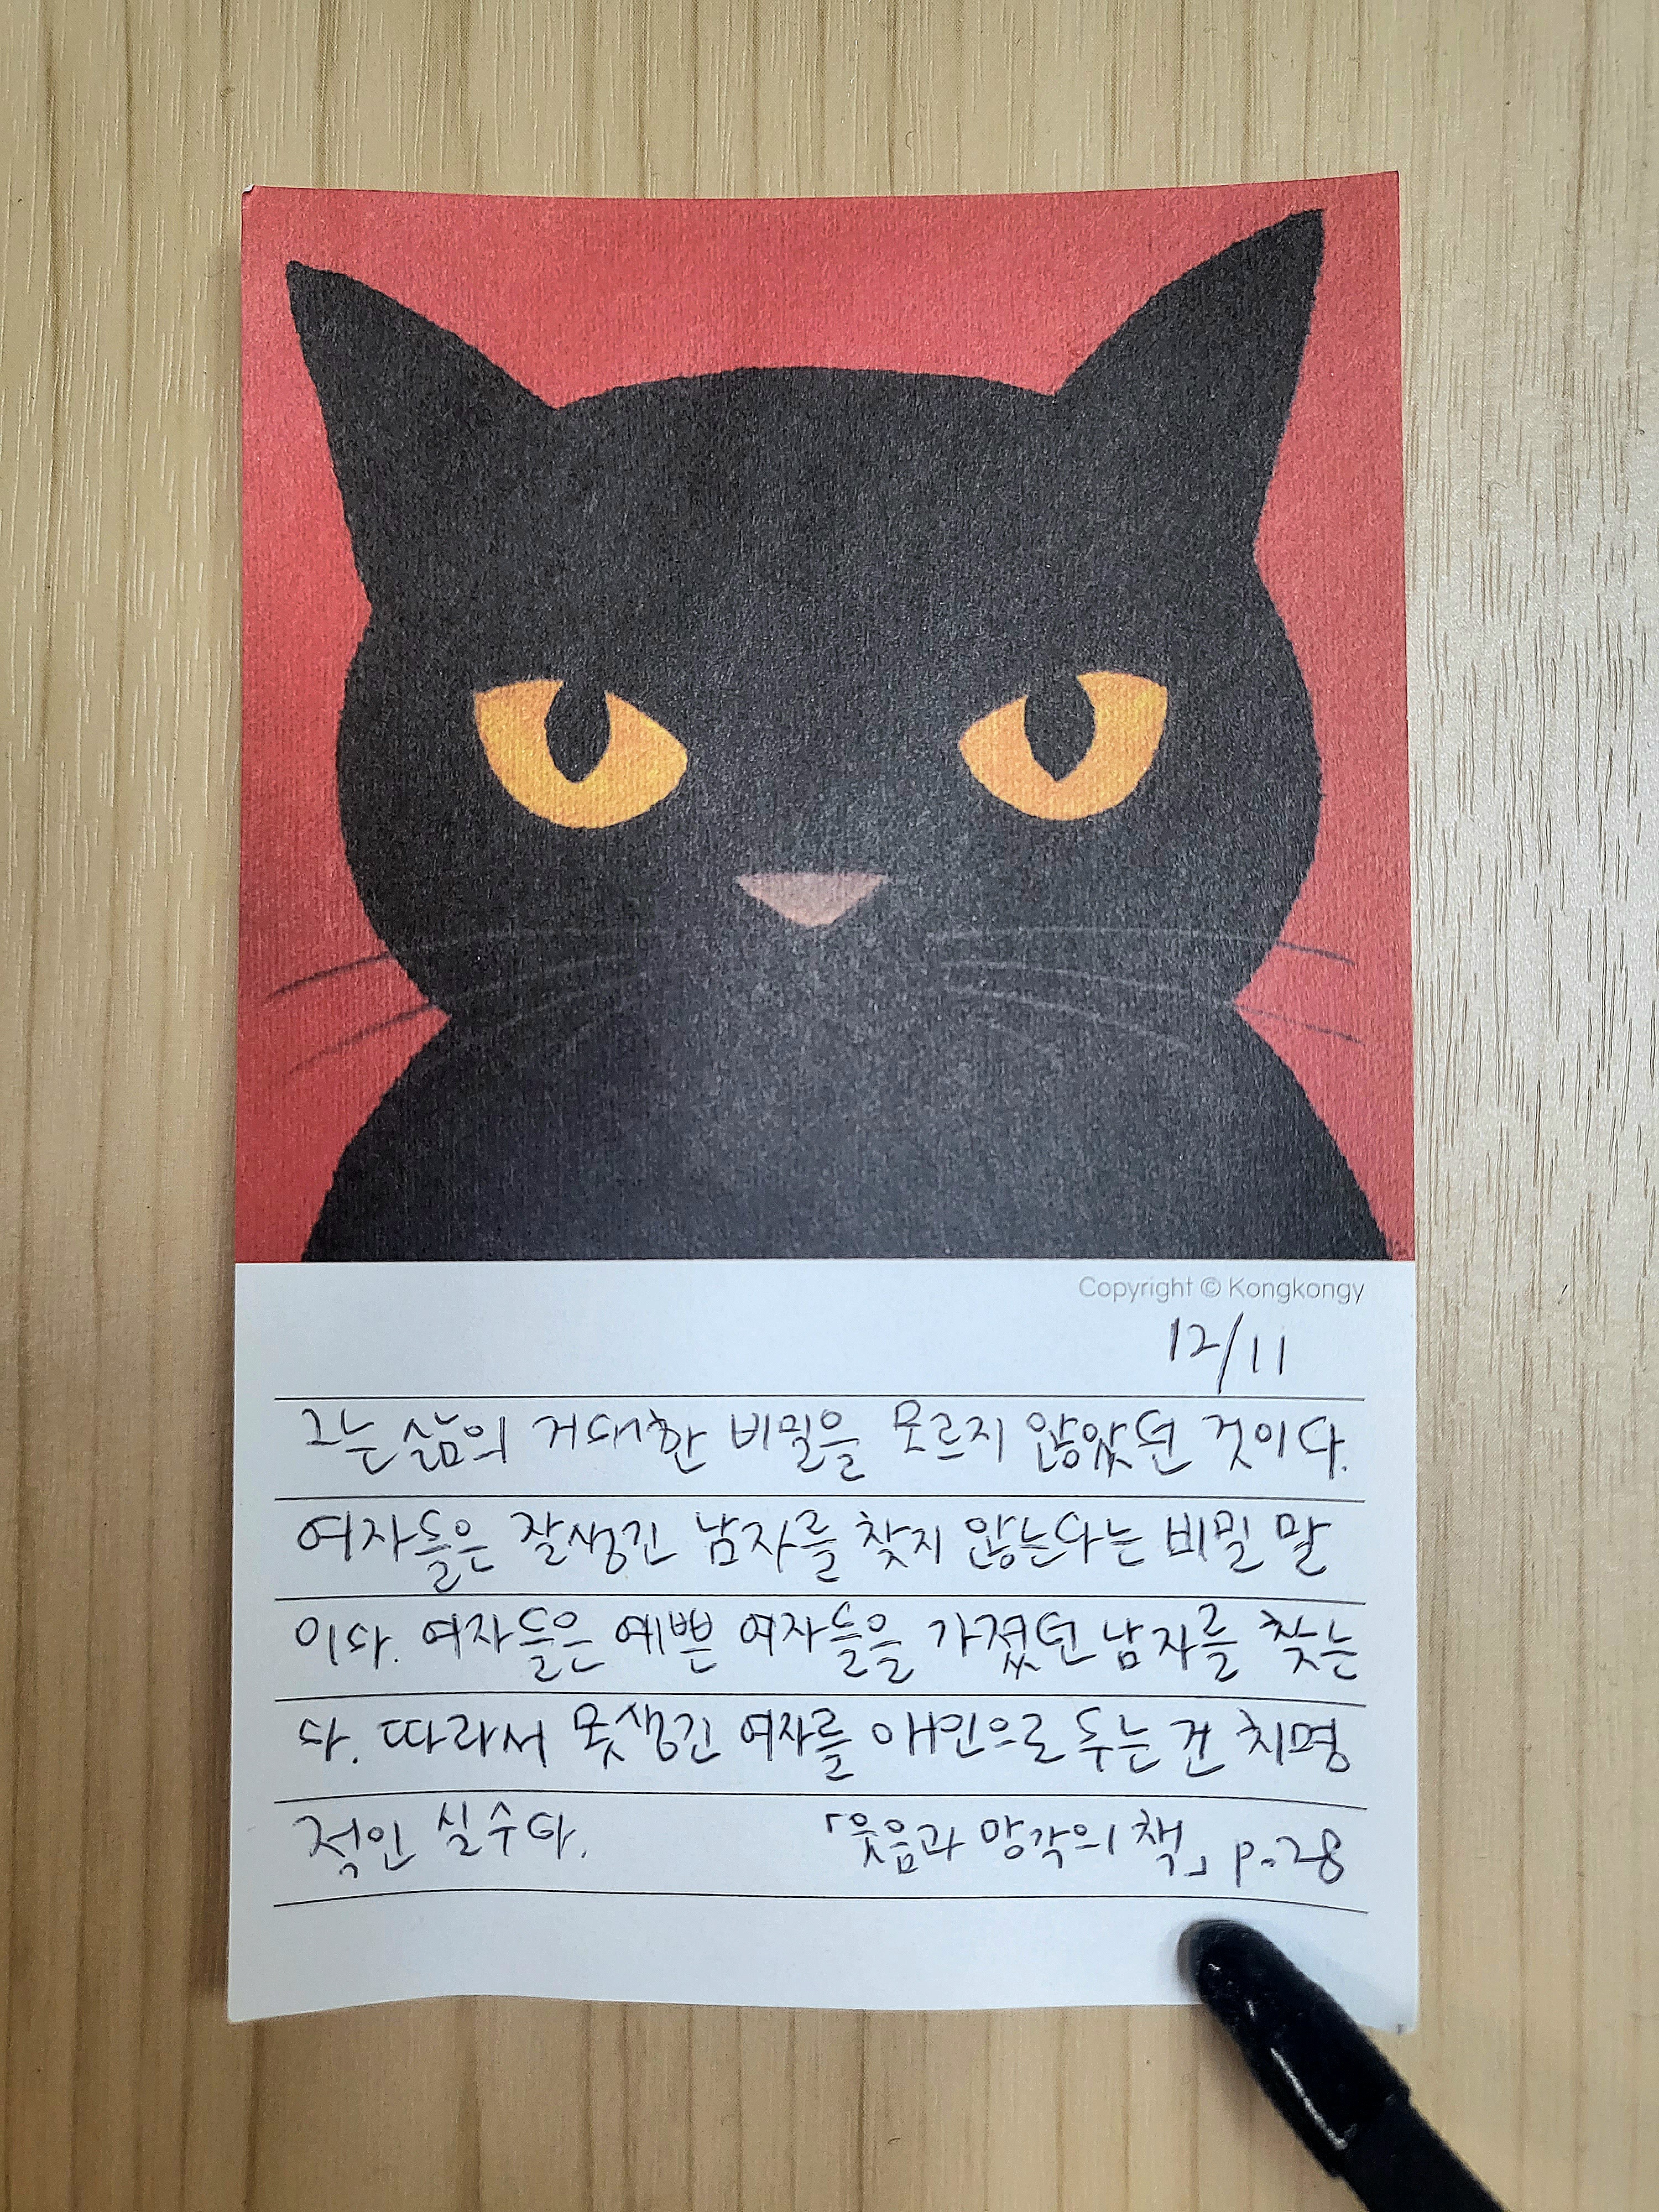 Copyright © Kongkongy
12/11
그는 삶의 거대한 비밀을 모르지 않았던 것이다.
여자들은 잘생긴 남자를 찾지 않는다는 비밀 말
이다. 여자들은 예쁜 여자들을 가졌던 남자를 찾는
다. 따라서 못생긴 여자를 애인으로 두는 건 치명
적인 실수다. 「웃음과 망각의 책」 p.28